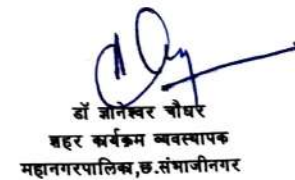 डॉ ज्ञानेश्वर चौधरी
शहर कार्यक्रम व्यवस्थापक
महानगरपालिका,छ.संभाजीनगर